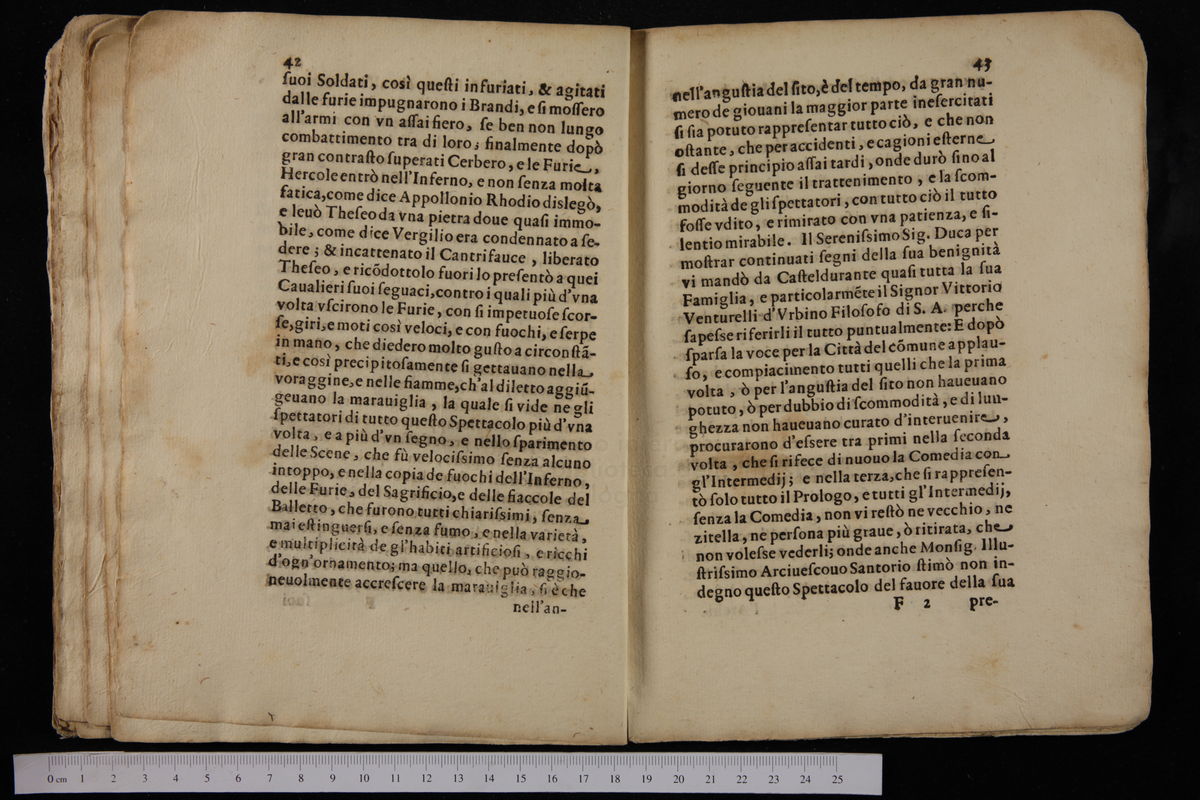 42
ſuoi Soldati, così queſti infuriati, & agitati
dalle furie impugnarono i Brandi, e ſi moſſero
all'armi con vn aſſai fiero, ſe ben non lungo
combattimento tra di loro; finalmente dopò
gran contraſto ſuperati Cerbero, e le Furie,
Hercole entrò nell'Inferno, e non ſenza molta
fatica, come dice Appollonio Rhodio dislegò,
e leuò Theſeo da vna pietra doue quaſi immo-
bile, come dice Vergilio era condennato a ſe-
dere; & incattenato il Cantrifauce, liberato
Theſeo, e ricõdottolo fuori lo preſentò a quei
Caualieri ſuoi ſeguaci, contro i quali più d'vna
volta vſcirono le Furie, con ſi impetuoſe ſcor-
ſe, giri, e moti così veloci, e con fuochi, e ſerpe
in mano, che diedero molto guſto a circonſtã-
ti, e così precipitoſamente ſi gettauano nella
voraggine, e nelle fiamme, ch'al diletto aggiũ-
geuano la marauiglia, la quale ſi vide ne gli
ſpettatori di tutto queſto Spettacolo più d'vna
volta, e a più d'vn ſegno, e nello ſparimento
delle Scene, che fù velociſsimo ſenza alcuno
intoppo, e nella copia de fuochi dell'Inferno,
delle Furie, del Sagrificio, e delle fiaccole del
Balletto, che furono tutti chiariſsimi, ſenza
mai eſtinguerſi, e ſenza fumo, e nella varietà,
e multiplicità de gl'habiti artificioſi, e ricchi
d'ogn'ornamento; ma quello, che può raggio-
neuolmente accreſcere la marauiglia, ſi è che
nell'an-
43
nell'anguſtia del ſito, è del tempo, da gran nu-
mero de giouani la maggior parte ineſercitati
ſi ſia potuto rappreſentar tutto ciò, e che non
oſtante, che per accidenti, e cagioni eſterne
ſi deſſe principio aſſai tardi, onde durò ſino al
giorno ſeguente il trattenimento, e la ſcom-
modità de gli ſpettatori, con tutto ciò il tutto
foſſe vdito, e rimirato con vna patienza, e ſi-
lentio mirabile. Il Sereniſsimo Sig. Duca per
moſtrar continuati ſegni della ſua benignità
vi mandò da Caſteldurante quaſi tutta la ſua
Famiglia, e particolarmẽte il Signor Vittorio
Venturelli d'Vrbino Filoſofo di S. A. perche
ſapeſse riferirli il tutto puntualmente: E dopò
ſparſa la voce per la Città del cõmune applau-
ſo, e compiacimento tutti quelli che la prima
volta, ò per l'anguſtia del ſito non haueuano
potuto, ò per dubbio di ſcommodità, e di lun-
ghezza non haueuano curato d'interuenire,
procurarono d'eſsere tra primi nella ſeconda
volta, che ſi rifece di nuouo la Comedia con
gl'Intermedij; e nella terza, che ſi rappreſen-
tò ſolo tutto il Prologo, e tutti gl'Intermedij,
ſenza la Comedia, non vi reſtò ne vecchio, ne
zitella, ne perſona più graue, ò ritirata, che
non voleſse vederli; onde anche Monſig. Illu-
ſtriſsimo Arciueſcouo Santorio ſtimò non in-
degno queſto Spettacolo del fauore della ſua
F 2 pre-
0 cm 1 2 3 4 5 6 7 8 9 10 11 12 13 14 15 16 17 18 19 20 21 22 23 24 25